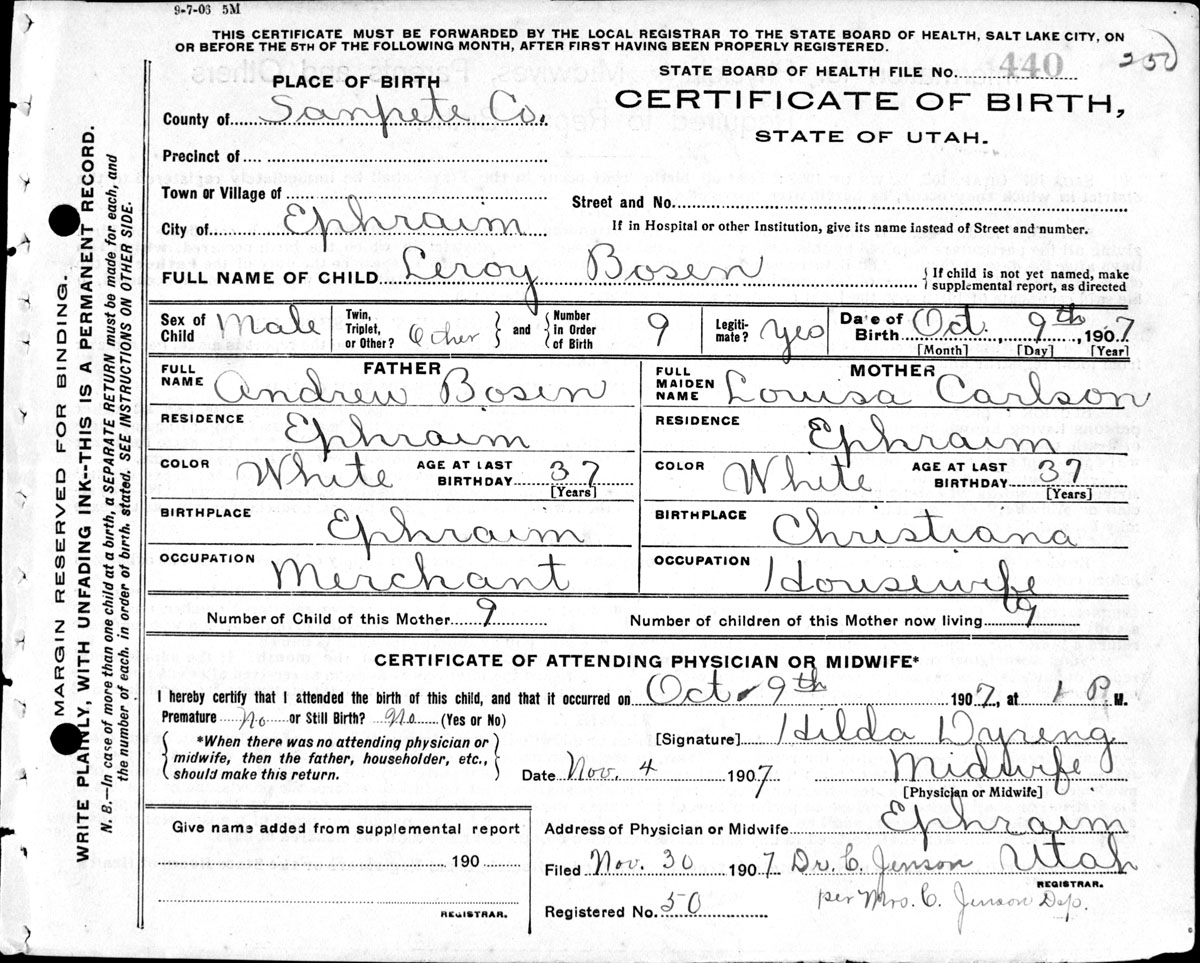 9-7-06 5M
THIS CERTIFICATE MUST BE FORWARDED BY THE LOCAL REGISTRAR TO THE STATE BOARD OF HEALTH, SALT LAKE CITY, ON
OR BEFORE THE 5TH OF THE FOLLOWING MONTH, AFTER FIRST HAVING BEEN PROPERLY REGISTERED.
250
STATE BOARD OF HEALTH FILE No. 440
PLACE OF BIRTH
CERTIFICATE OF BIRTH,
STATE OF UTAH.
County of Sanpete Co.
Precinct of
Town or Village of
Street and No.
City of Ephraim
If in Hospital or other Institution, give its name instead of Street and number.
FULL NAME OF CHILD Leroy Bosen
{ If child is not yet named, make
supplemental report, as directed
Sex of Child Male
Twin, Triplet, or Other? Other } and { Number in Order of Birth 9
Legitimate? Yes
Date of Birth Oct. 9th, 1907
[Month] [Day] [Year]
FATHER
FULL NAME Andrew Bosen
RESIDENCE Ephraim
COLOR White AGE AT LAST BIRTHDAY 37
[Years]
BIRTHPLACE Ephraim
OCCUPATION Merchant
MOTHER
FULL MAIDEN NAME Louisa Carlson
RESIDENCE Ephraim
COLOR White AGE AT LAST BIRTHDAY 37
[Years]
BIRTHPLACE Christiana
OCCUPATION Housewife
Number of Child of this Mother 9
Number of children of this Mother now living 9
CERTIFICATE OF ATTENDING PHYSICIAN OR MIDWIFE*
I hereby certify that I attended the birth of this child, and that it occurred on Oct 9th 1907, at 1 P M.
Premature No or Still Birth? No (Yes or No)
{ *When there was no attending physician or
midwife, then the father, householder, etc.,
should make this return. }
[Signature] Hilda Dyreng
Date Nov. 4 1907 Midwife
[Physician or Midwife]
Give name added from supplemental report
190
REGISTRAR.
Address of Physician or Midwife Ephraim
Filed Nov. 30 1907 Dr. C. Jenson Utah
REGISTRAR.
Registered No. 50 per Mrs. C. Jenson Dep.
MARGIN RESERVED FOR BINDING.
WRITE PLAINLY, WITH UNFADING INK--THIS IS A PERMANENT RECORD.
N. B.—In case of more than one child at a birth, a SEPARATE RETURN must be made for each, and
the number of each, in order of birth, stated. SEE INSTRUCTIONS ON OTHER SIDE.